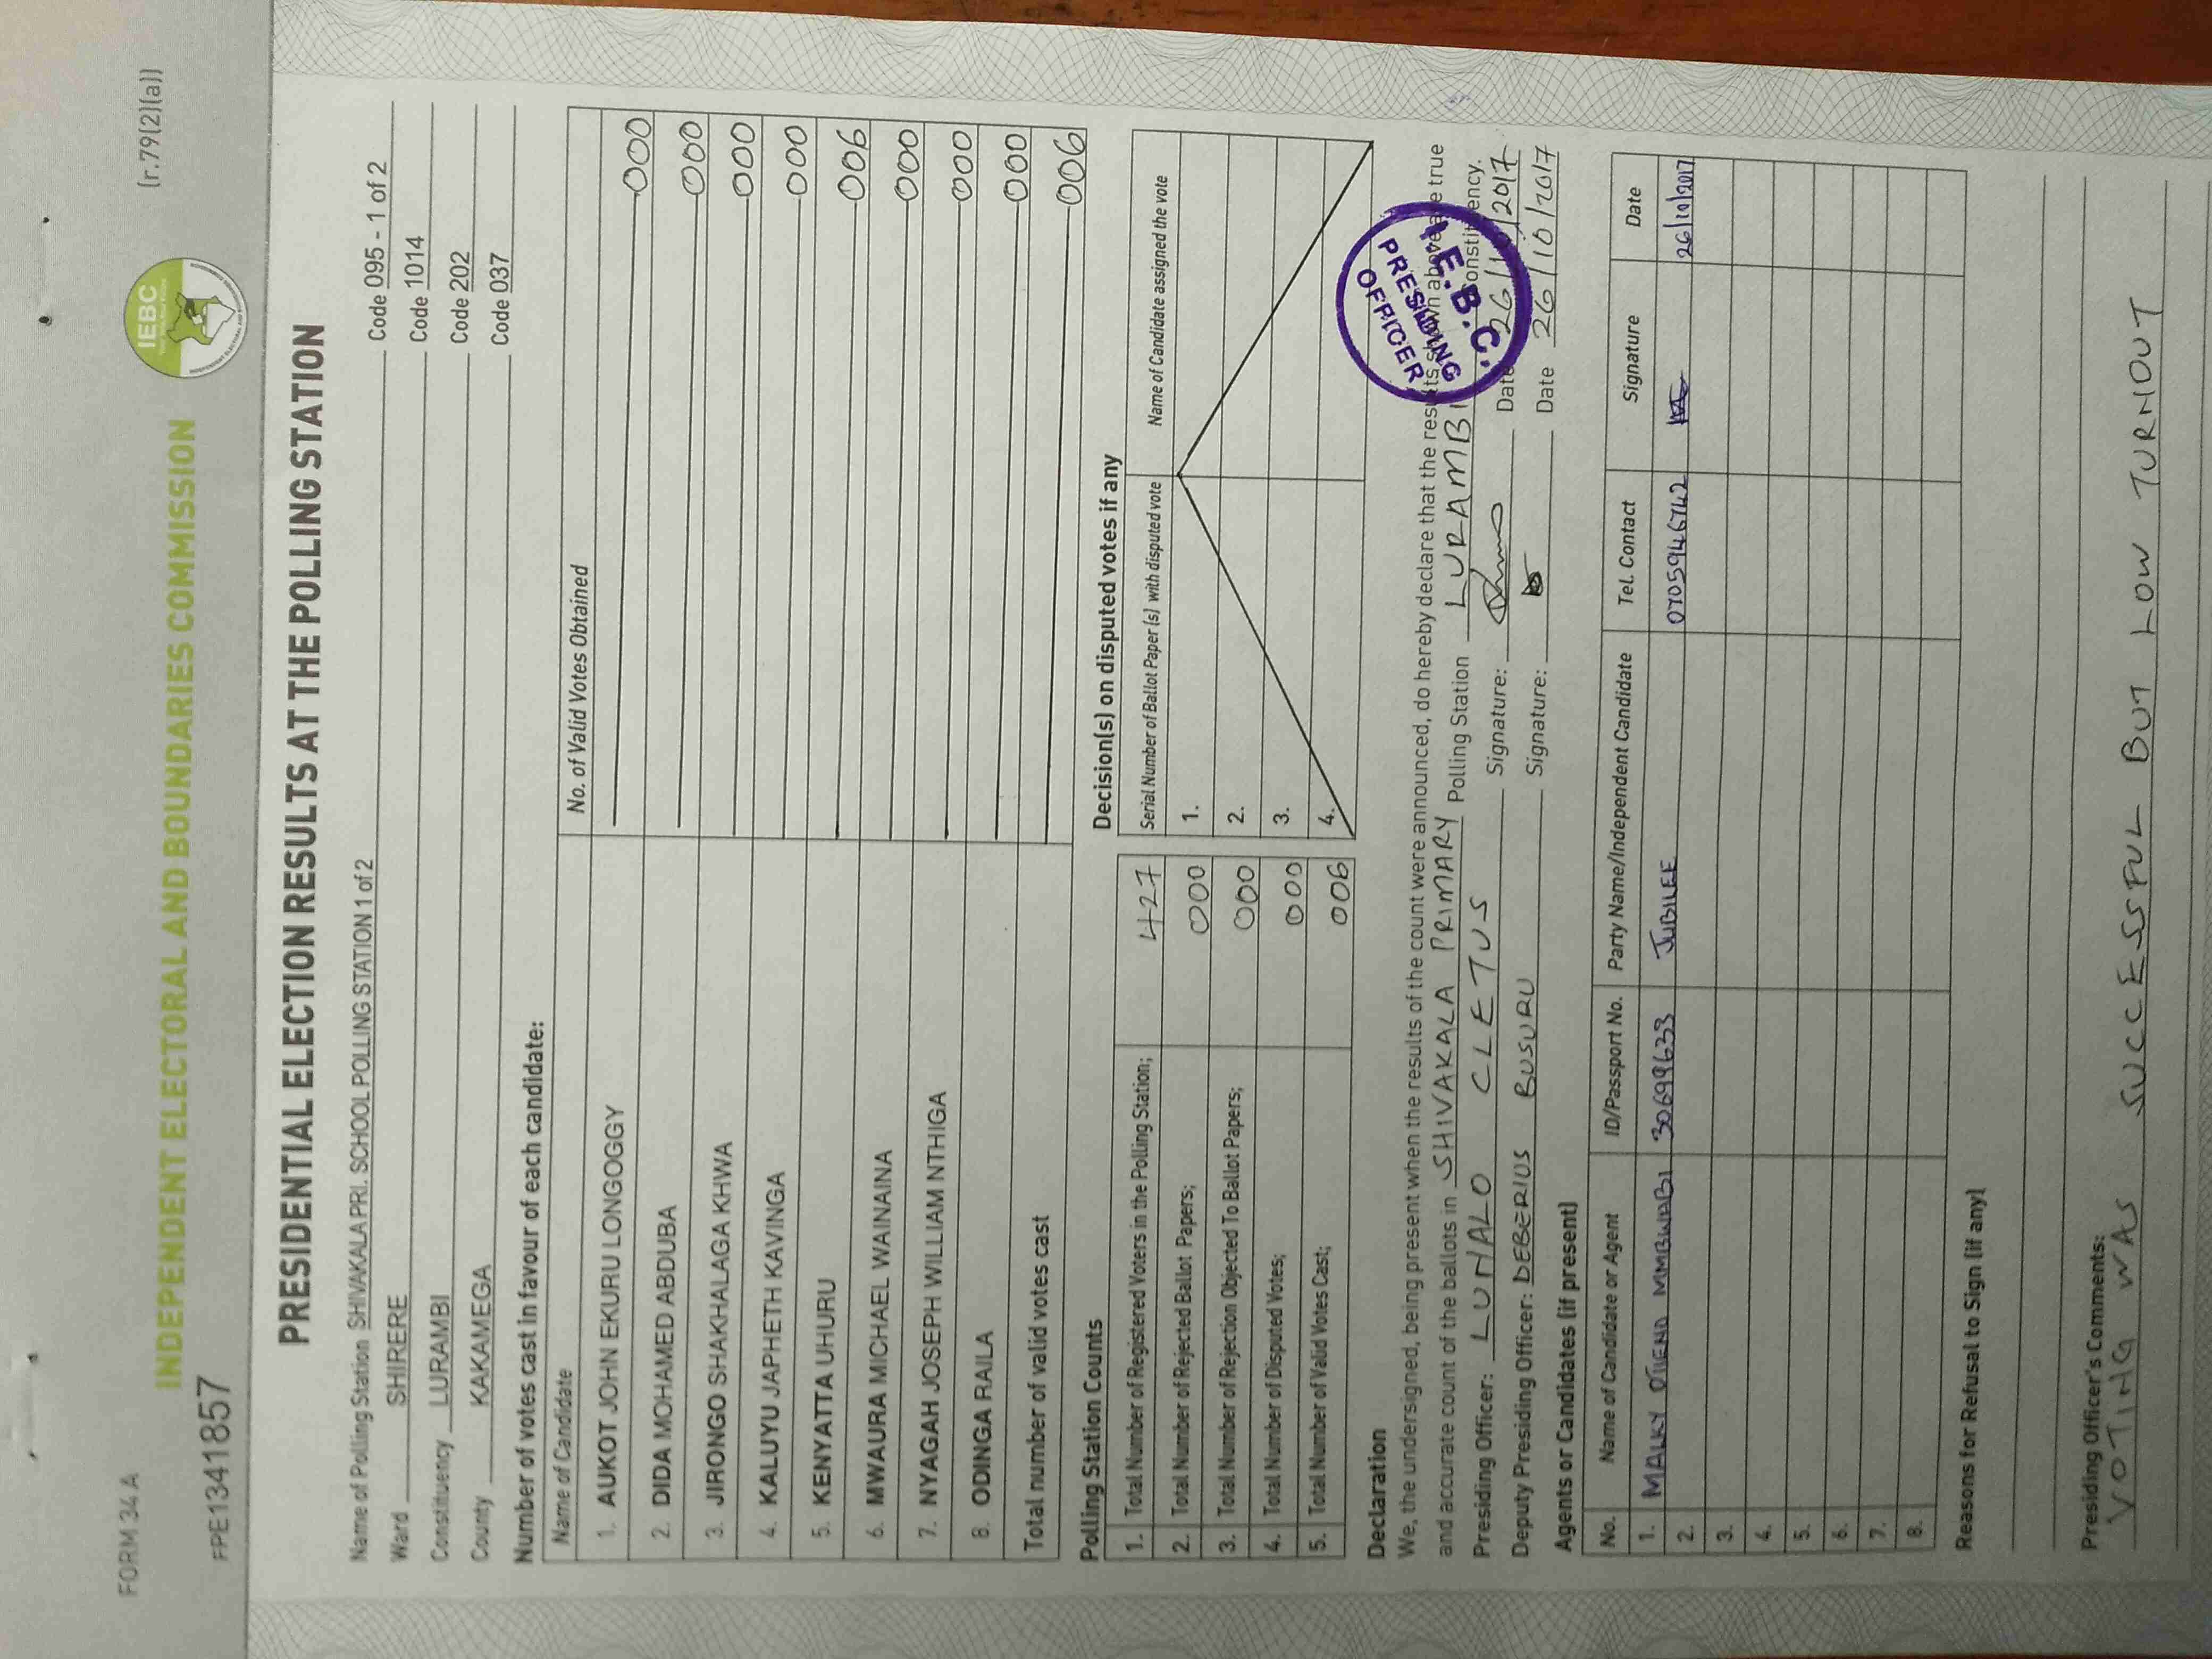 FORM 34 A
(r.79(2)(a))
IEBC
INDEPENDENT ELECTORAL AND BOUNDARIES COMMISSION
FPE1341857
PRESIDENTIAL ELECTION RESULTS AT THE POLLING STATION
Name of Polling Station SHIVAKALA PRI. SCHOOL POLLING STATION 1 of 2 Code 095 - 1 of 2
Ward SHIRERE Code 1014
Constituency LURAMBI Code 202
County KAKAMEGA Code 037
Number of votes cast in favour of each candidate:
Name of Candidate No. of Valid Votes Obtained
1. AUKOT JOHN EKURU LONGOGGY 000
2. DIDA MOHAMED ABDUBA 000
3. JIRONGO SHAKHALAGA KHWA 000
4. KALUYU JAPHETH KAVINGA 000
5. KENYATTA UHURU 006
6. MWAURA MICHAEL WAINAINA 000
7. NYAGAH JOSEPH WILLIAM NTHIGA 000
8. ODINGA RAILA 000
Total number of valid votes cast 006
Polling Station Counts
1. Total Number of Registered Voters in the Polling Station; 427
2. Total Number of Rejected Ballot Papers; 000
3. Total Number of Rejection Objected To Ballot Papers; 000
4. Total Number of Disputed Votes; 000
5. Total Number of Valid Votes Cast; 006
Decision(s) on disputed votes if any
Serial Number of Ballot Paper (s) with disputed vote Name of Candidate assigned the vote
1.
2.
3.
4.
Declaration
We, the undersigned, being present when the results of the count were announced, do hereby declare that the results shown above are true
and accurate count of the ballots in SHIVAKALA PRIMARY Polling Station LURAMBI Constituency.
Presiding Officer: LUHALO CLETUS Signature: Date 26/10/2017
Deputy Presiding Officer: DEBERIUS BUSURU Signature: Date 26/10/2017
I.E.B.C.
PRESIDING
OFFICER
Agents or Candidates (if present)
No. Name of Candidate or Agent ID/Passport No. Party Name/Independent Candidate Tel. Contact Signature Date
1. MALKY OTIENO MMBWABI 30699633 JUBILEE 0705946742 26/10/2017
2.
3.
4.
5.
6.
7.
8.
Reasons for Refusal to Sign (if any)
Presiding Officer's Comments:
VOTING WAS SUCCESSFUL BUT LOW TURNOUT